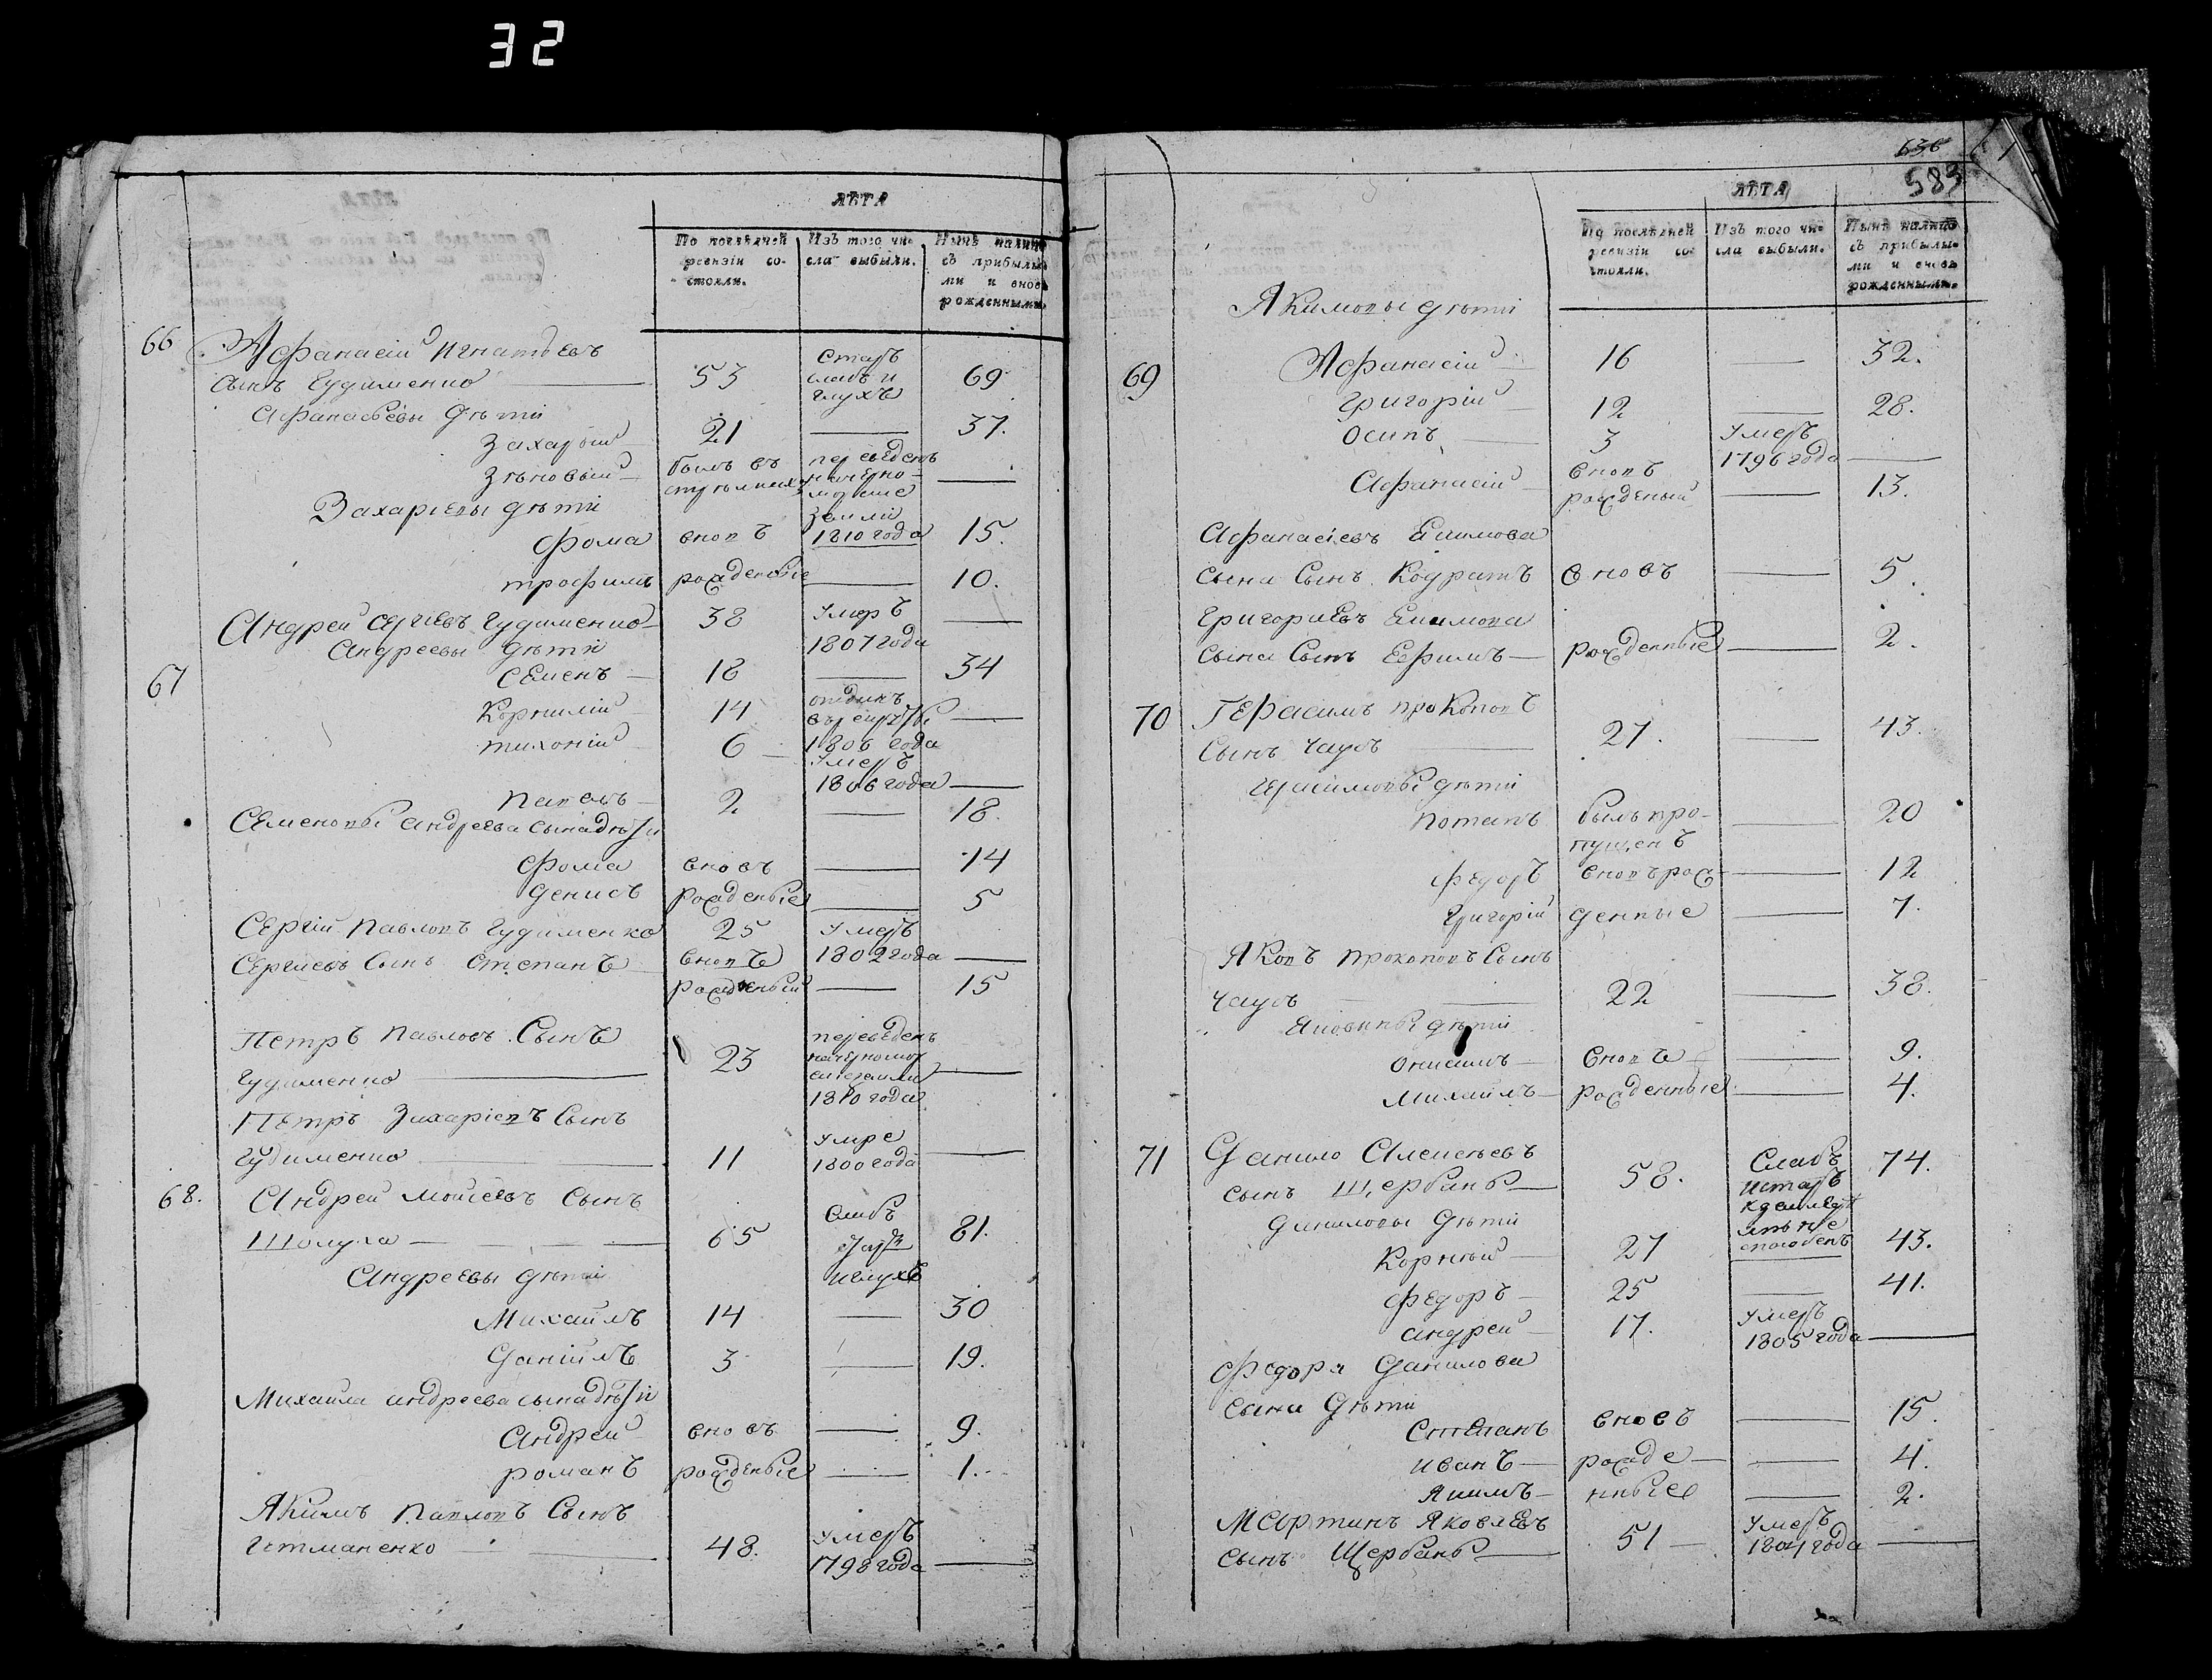 32
ЛѢТА
По послѣдней ревизіи со-стояли.
Изъ того чи-сла выбыли.
Нынѣ налицо съ прибылы-ми и вновь рожденными.
66 Афанасій Игнатьевъ
сынъ Гудименко 53 старъ слабъ и глухъ 69
Афанасьевы дѣти
Захарій 21 — 37.
Зѣновый былъ въ стрѣлкахъ переведенъ на черно-морские земли 1810 года —
Захаріевы дѣти
Фома вновь 15.
трофимъ рожденные — 10.
Андрей Сергіевъ Гудименко 38 умеръ 1807 года —
Андреевы дѣти
67 Семенъ 18 — 34
Корнилій 14 отданъ въ рекруты 1806 года —
тихоній 6 умеръ 1806 года —
Павелъ 2 — 18.
Семеновы Андреева сына дѣти
Фома вновь — 14
Денисъ рожденые — 5
Сергій Павловъ Гудименко 25 умеръ 1802 года —
Сергіевъ Сынъ Степанъ вновь рожденый — 15
Петръ Павловъ Сынъ
Гудименко 23 переведенъ на черномор ские земли 1810 года —
Петръ Захаріевъ Сынъ
Гудименко 11 умре 1800 года —
68. Андрей Моисеевъ Сынъ
Шолуха 65 слабъ старъ и глухъ 81.
Андреевы дѣти
Михаилъ 14 — 30
Даніилъ 3 — 19.
Михаила Андреева сына дѣти
Андрей вновь — 9.
романъ рожденые — 1.
Якимъ Павловъ Сынъ
Гетманенко 48. умеръ 1798 года —
636
583
ЛѢТА
По послѣдней ревизіи со-стояли.
Изъ того чи-сла выбыли.
Нынѣ налицо съ прибылы-ми и вновь рожденными.
Якимовы дѣти
69 Афанасій 16 — 32.
Григорій 12 — 28.
Осипъ 3 умеръ 1796 года —
Афанасій вновь рожденый — 13.
Афанасіевъ Екимова
сына Сынъ Кодратъ вновь — 5.
Григориевъ Екимова
сына Сынъ Ефимъ рожденные — 2.
70 Герасимъ прокоповъ
Сынъ Чаусъ 27. — 43.
Герасимовы дѣти
Потапъ былъ про-пущенъ — 20
Федоръ вновь рож- — 12
Григорій денные — 7.
Яковъ Прокоповъ Сынъ
Чаусъ 22 — 38.
Яковевы дѣти
Онисимъ вновь — 9.
Михаилъ рожденные — 4.
71 Данило Алексѣевъ
сынъ Щербань 58. Слабъ и старъ к землед ѣлію не способенъ 74.
Даниловы дѣти
Корній 27 — 43.
Федоръ 25 — 41.
Андрей 17. умеръ 1805 года —
Федора Данилова
Сына дѣти
Степанъ вновь — 15.
Иванъ рожде — 4.
Якимъ нные — 2.
Мартинъ Яковлевъ
сынъ Щербань 51 умеръ 1804 года —